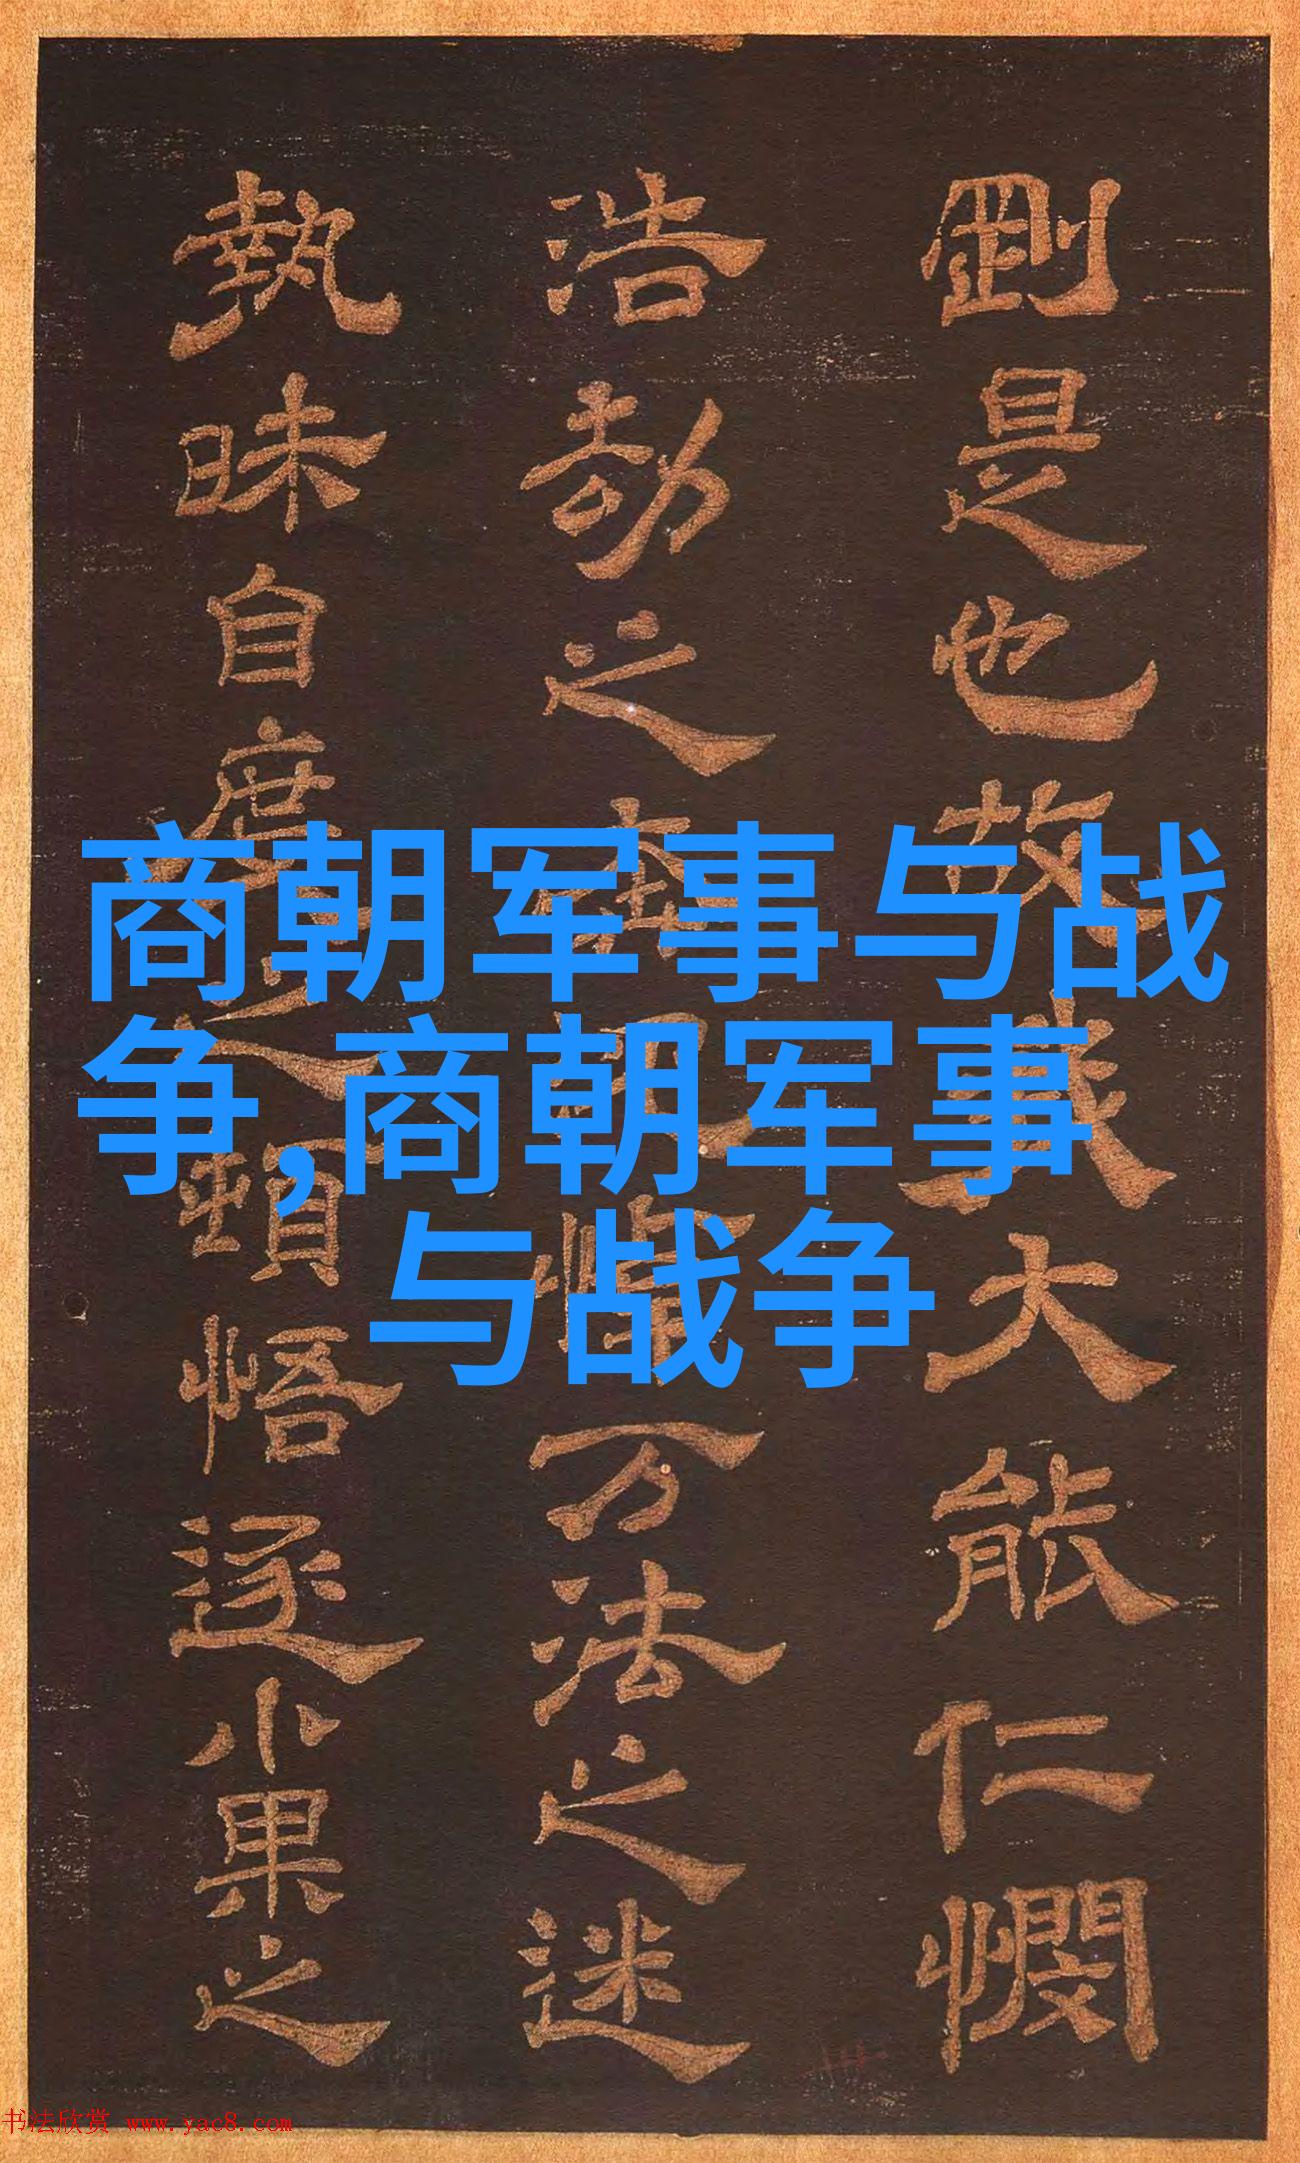 商朝军事与战
争,商朝军事
与战争
剛是也故我大能仁憫
浩劫之 万法之迷
執昧自度之頓悟逐小果之
书法欣赏 www.yac8.com